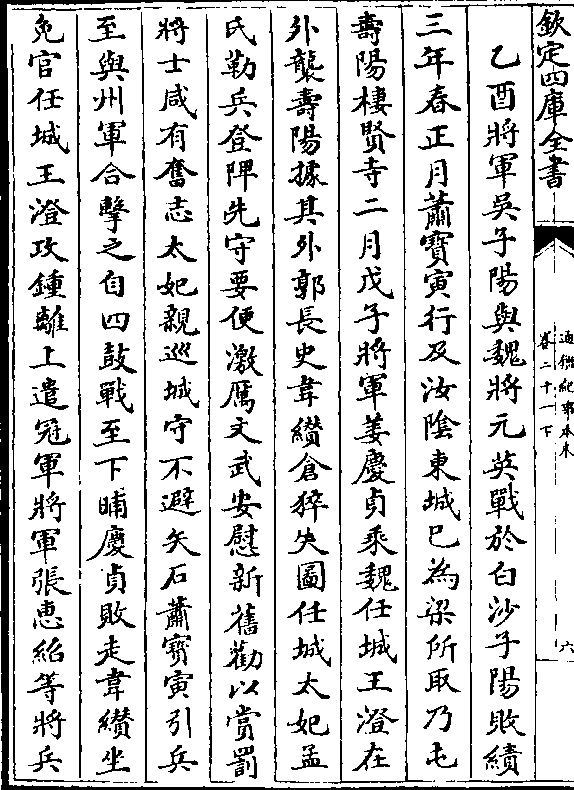 欽定四庫全書
通鑑紀事本末
卷二十一下
六
乙酉將軍吳子陽與魏將元英戰於白沙子陽敗績
三年春正月蕭寶寅行及汝陰東城已為梁所取乃屯
壽陽棲賢寺二月戊子將軍姜慶貞乘魏任城王澄在
外襲壽陽據其外郭長史韋纘倉猝失圖任城太妃孟
氏勒兵登陴先守要便激厲文武安慰新舊勸以賞罰
將士咸有奮志太妃親巡城守不避矢石蕭寶寅引兵
至與州軍合擊之自四鼓戰至下晡慶貞敗走韋纘坐
免官任城王澄攻鍾離上遣冠軍將軍張惠紹等將兵